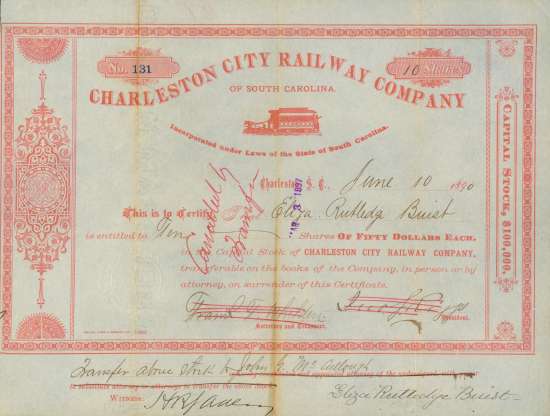 No. 131
10 Shares
CHARLESTON CITY RAILWAY COMPANY
OF SOUTH CAROLINA.
Incorporated under Laws of the State of South Carolina.
Charleston S. C., June 10 1890
MAR 3 1897
This is to Certify Eliza Rutledge Buist
is entitled to Ten Shares OF FIFTY DOLLARS EACH,
in the Capital Stock of CHARLESTON CITY RAILWAY COMPANY,
transferable on the books of the Company, in person or by
attorney, on surrender of this Certificate.
Cancelled by
Transfer
Secretary and Treasurer.
President.
CAPITAL STOCK, $100,000.
Transfer above stock to John G. McCullough
Eliza Rutledge Buist
WITNESS: